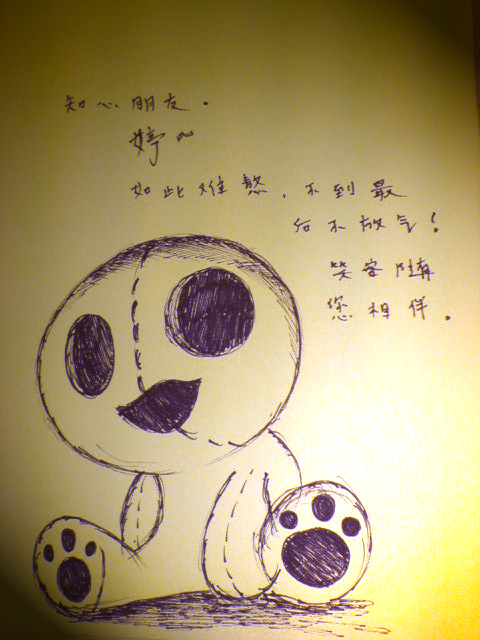 知心朋友.
婷~
如此难熬,不到最
后不放气!
笑容随
您相伴.